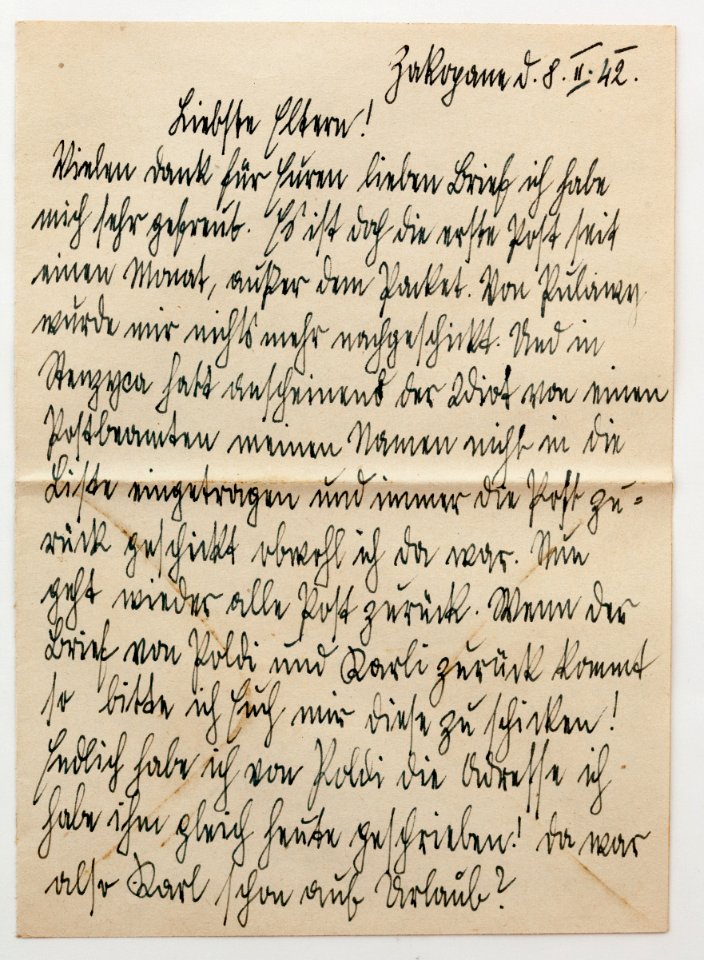 Zakopane d. 8. II. 42.
Liebste Eltern!
Vielen Dank für Euren lieben Brief ich habe
mich sehr gefreut. Es ist doch die erste Post seit
einen Monat, außer dem Packet. Von Pulawy
wurde mir nichts mehr nachgeschickt. Und in
Stenzyca hatt anscheinend der Idiot von einen
Postbeamten meinen Namen nicht in die
Liste eingetragen und immer die Post zu=
rück geschickt obwohl ich da war. Nun
geht wieder alle Post zurück. Wenn der
Brief von Poldi und Karli zurück kommt
so bitte ich Euch mir diese zu schicken!
Endlich habe ich von Poldi die Adresse ich
habe ihm gleich heute geschrieben! Da war
also Karl schon auf Urlaub?